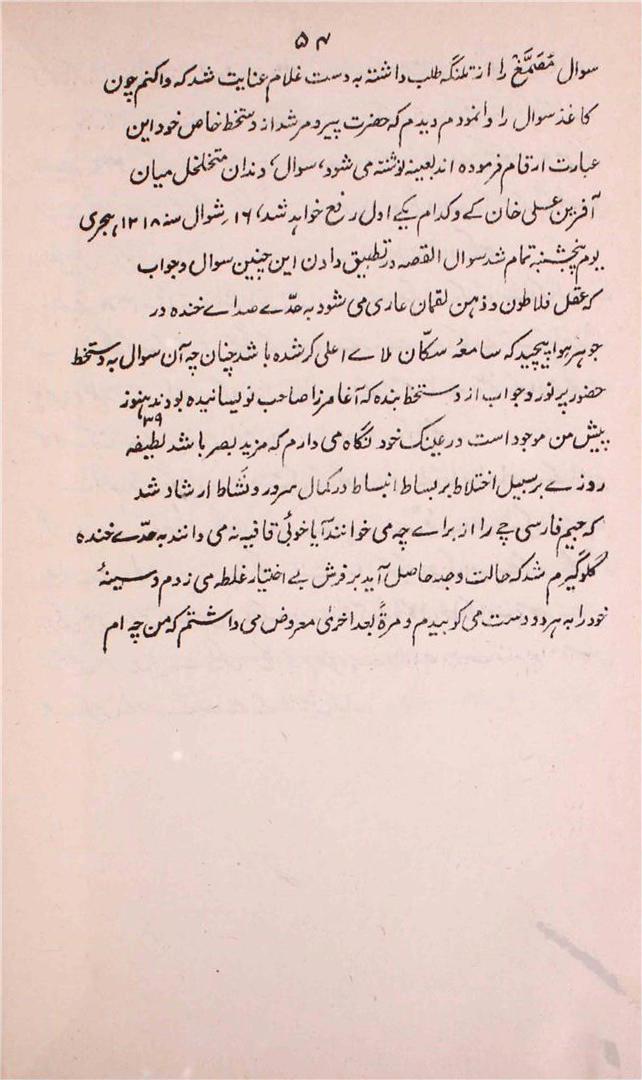 ۵۴
سوال مُصَمَّغْ را از تلنگہ طلب داشتہ بہ دست غلام عنایت شد کہ واکنم چون
کاغذ سوال را وا نمودم دیدم کہ حضرت پیر و مرشد از دستخط خاص خود این
عبارت ارقام فرمودہ اند بعینہ نوشتہ می شود، سوال، دندان متخلخل میان
آفرین علی خان کے و کدام یکے اول رفع خواہد شد، ۱۶ ر شوال سنہ ۱۲۱۸ ہجری
یوم پنجشنبہ تمام شد سوال القصہ در تطبیق دادن این چنین سوال و جواب
کہ عقل فلاطون و ذہن لقمان عاری می شود بہ حدّے صداے خندہ در
جوہر ہوا پیچید کہ سامعۂ سکّان ملاے اعلی کر شدہ باشد چنان چہ آن سوال بہ دستخط
حضور پرنور و جواب از دستخط بندہ کہ آغا مرزا صاحب نویسانیدہ بودند ہنوز
پیش من موجود است در عینک خود نگاہ می دارم کہ مزید بصر باشد لطیفہ ۳۹
روزے بر سبیل اختلاط بر بساط انبساط در کمال سرور و نشاط ارشاد شد
کہ جیم فارسی چے را از براے چہ می خوانند آیا خوئی قافیہ نہ می دانند بہ حدّے خندہ
گلوگیرم شد کہ حالت وجد حاصل آید بر فرش بے اختیار غلطہ می زدم و سینۂ
خود را بہ ہر دو دست می کوبیدم و مرۃً بعد اخریٰ معروض می داشتم کہ من چہ ام